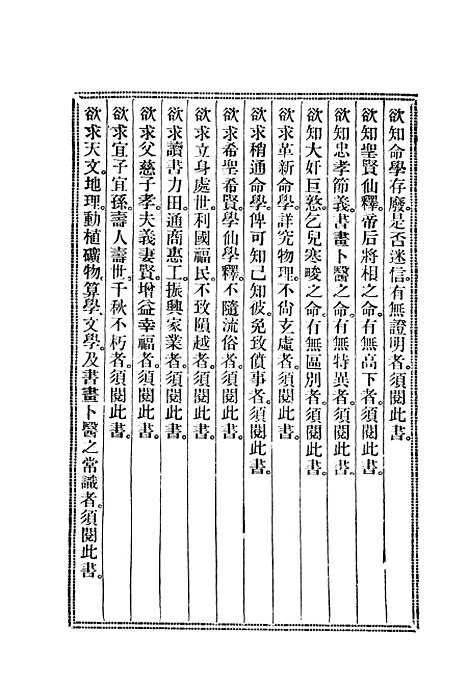 欲知命學存廢。是否迷信。有無證明者。須閱此書。
欲知聖賢仙釋。帝后將相之命。有無高下者。須閱此書。
欲知忠孝節義。書畫卜醫之命。有無特異者。須閱此書。
欲知大奸巨憝。乞兒寒畯之命。有無區別者。須閱此書。
欲求革新命學。詳究物理。不尙玄虛者。須閱此書。
欲求稍通命學。俾可知己知彼。免致僨事者。須閱此書。
欲求希聖希賢。學仙學釋。不隨流俗者。須閱此書。
欲求立身處世。利國福民。不致隕越者。須閱此書。
欲求讀書力田。通商惠工。振興家業者。須閱此書。
欲求父慈子孝。夫義妻賢。增益幸福者。須閱此書。
欲求宜子宜孫。壽人壽世。千秋不朽者。須閱此書。
欲求天文。地理。動植礦物。算學。文學。及書畫卜醫之常識者。須閱此書。